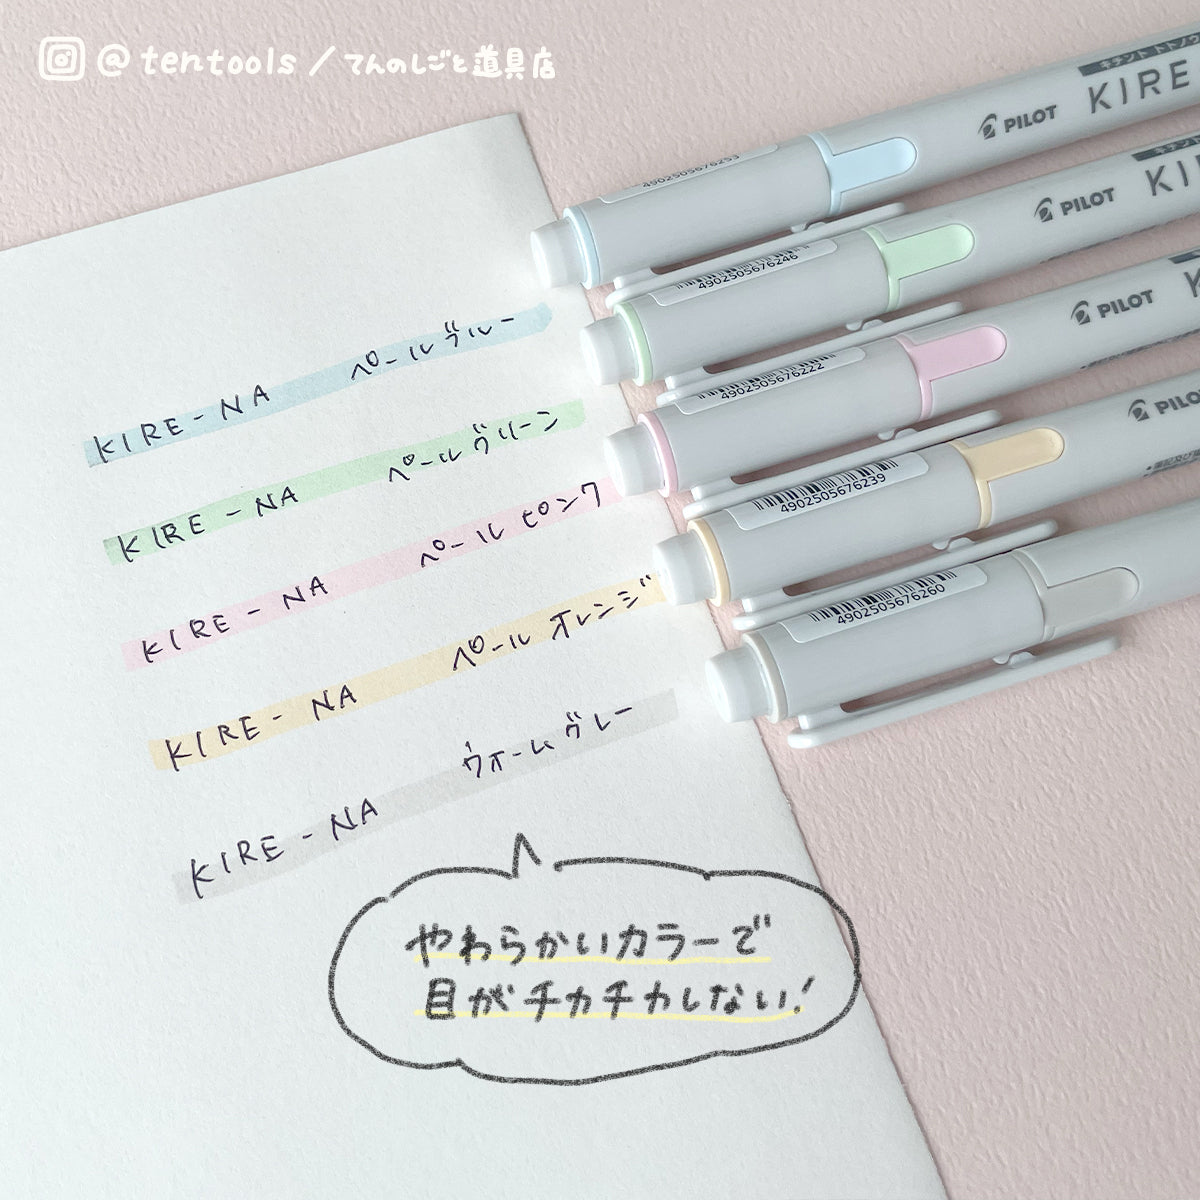 @tentools/てんのしごと道具店
キチント トトノウ
KIRE
PILOT
4902505676253
KI
PILOT
4902505676246
K
PILOT
4902505676222
PILOT
4902505676239
4902505676260
KIRE-NA ペールブルー
KIRE-NA ペールグリーン
KIRE-NA ペールピンク
KIRE-NA ペールオレンジ
KIRE-NA ウォームグレー
やわらかいカラーで
目がチカチカしない!